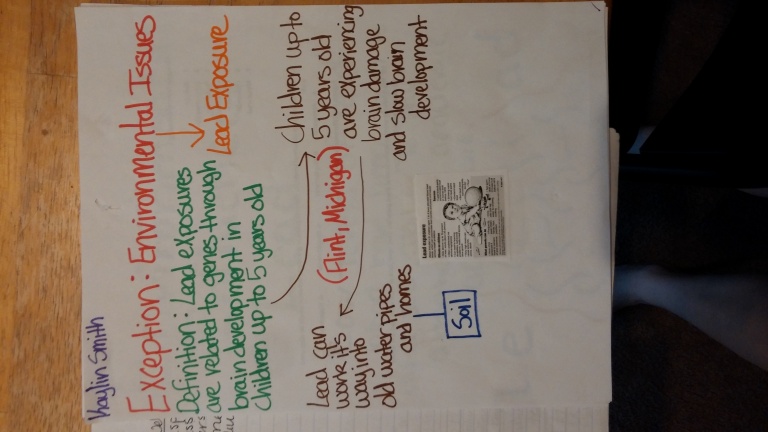 Kaylin Smith
Exception: Environmental Issues
Lead Exposure
Definition: Lead exposures
are related to genes through
brain development in
children up to 5 years old
Children up to
5 years old
are experiencing
brain damage
and slow brain
development
(Flint, Michigan)
Lead can
work it's
way into
old water pipes
and homes
Soil
Lead exposure